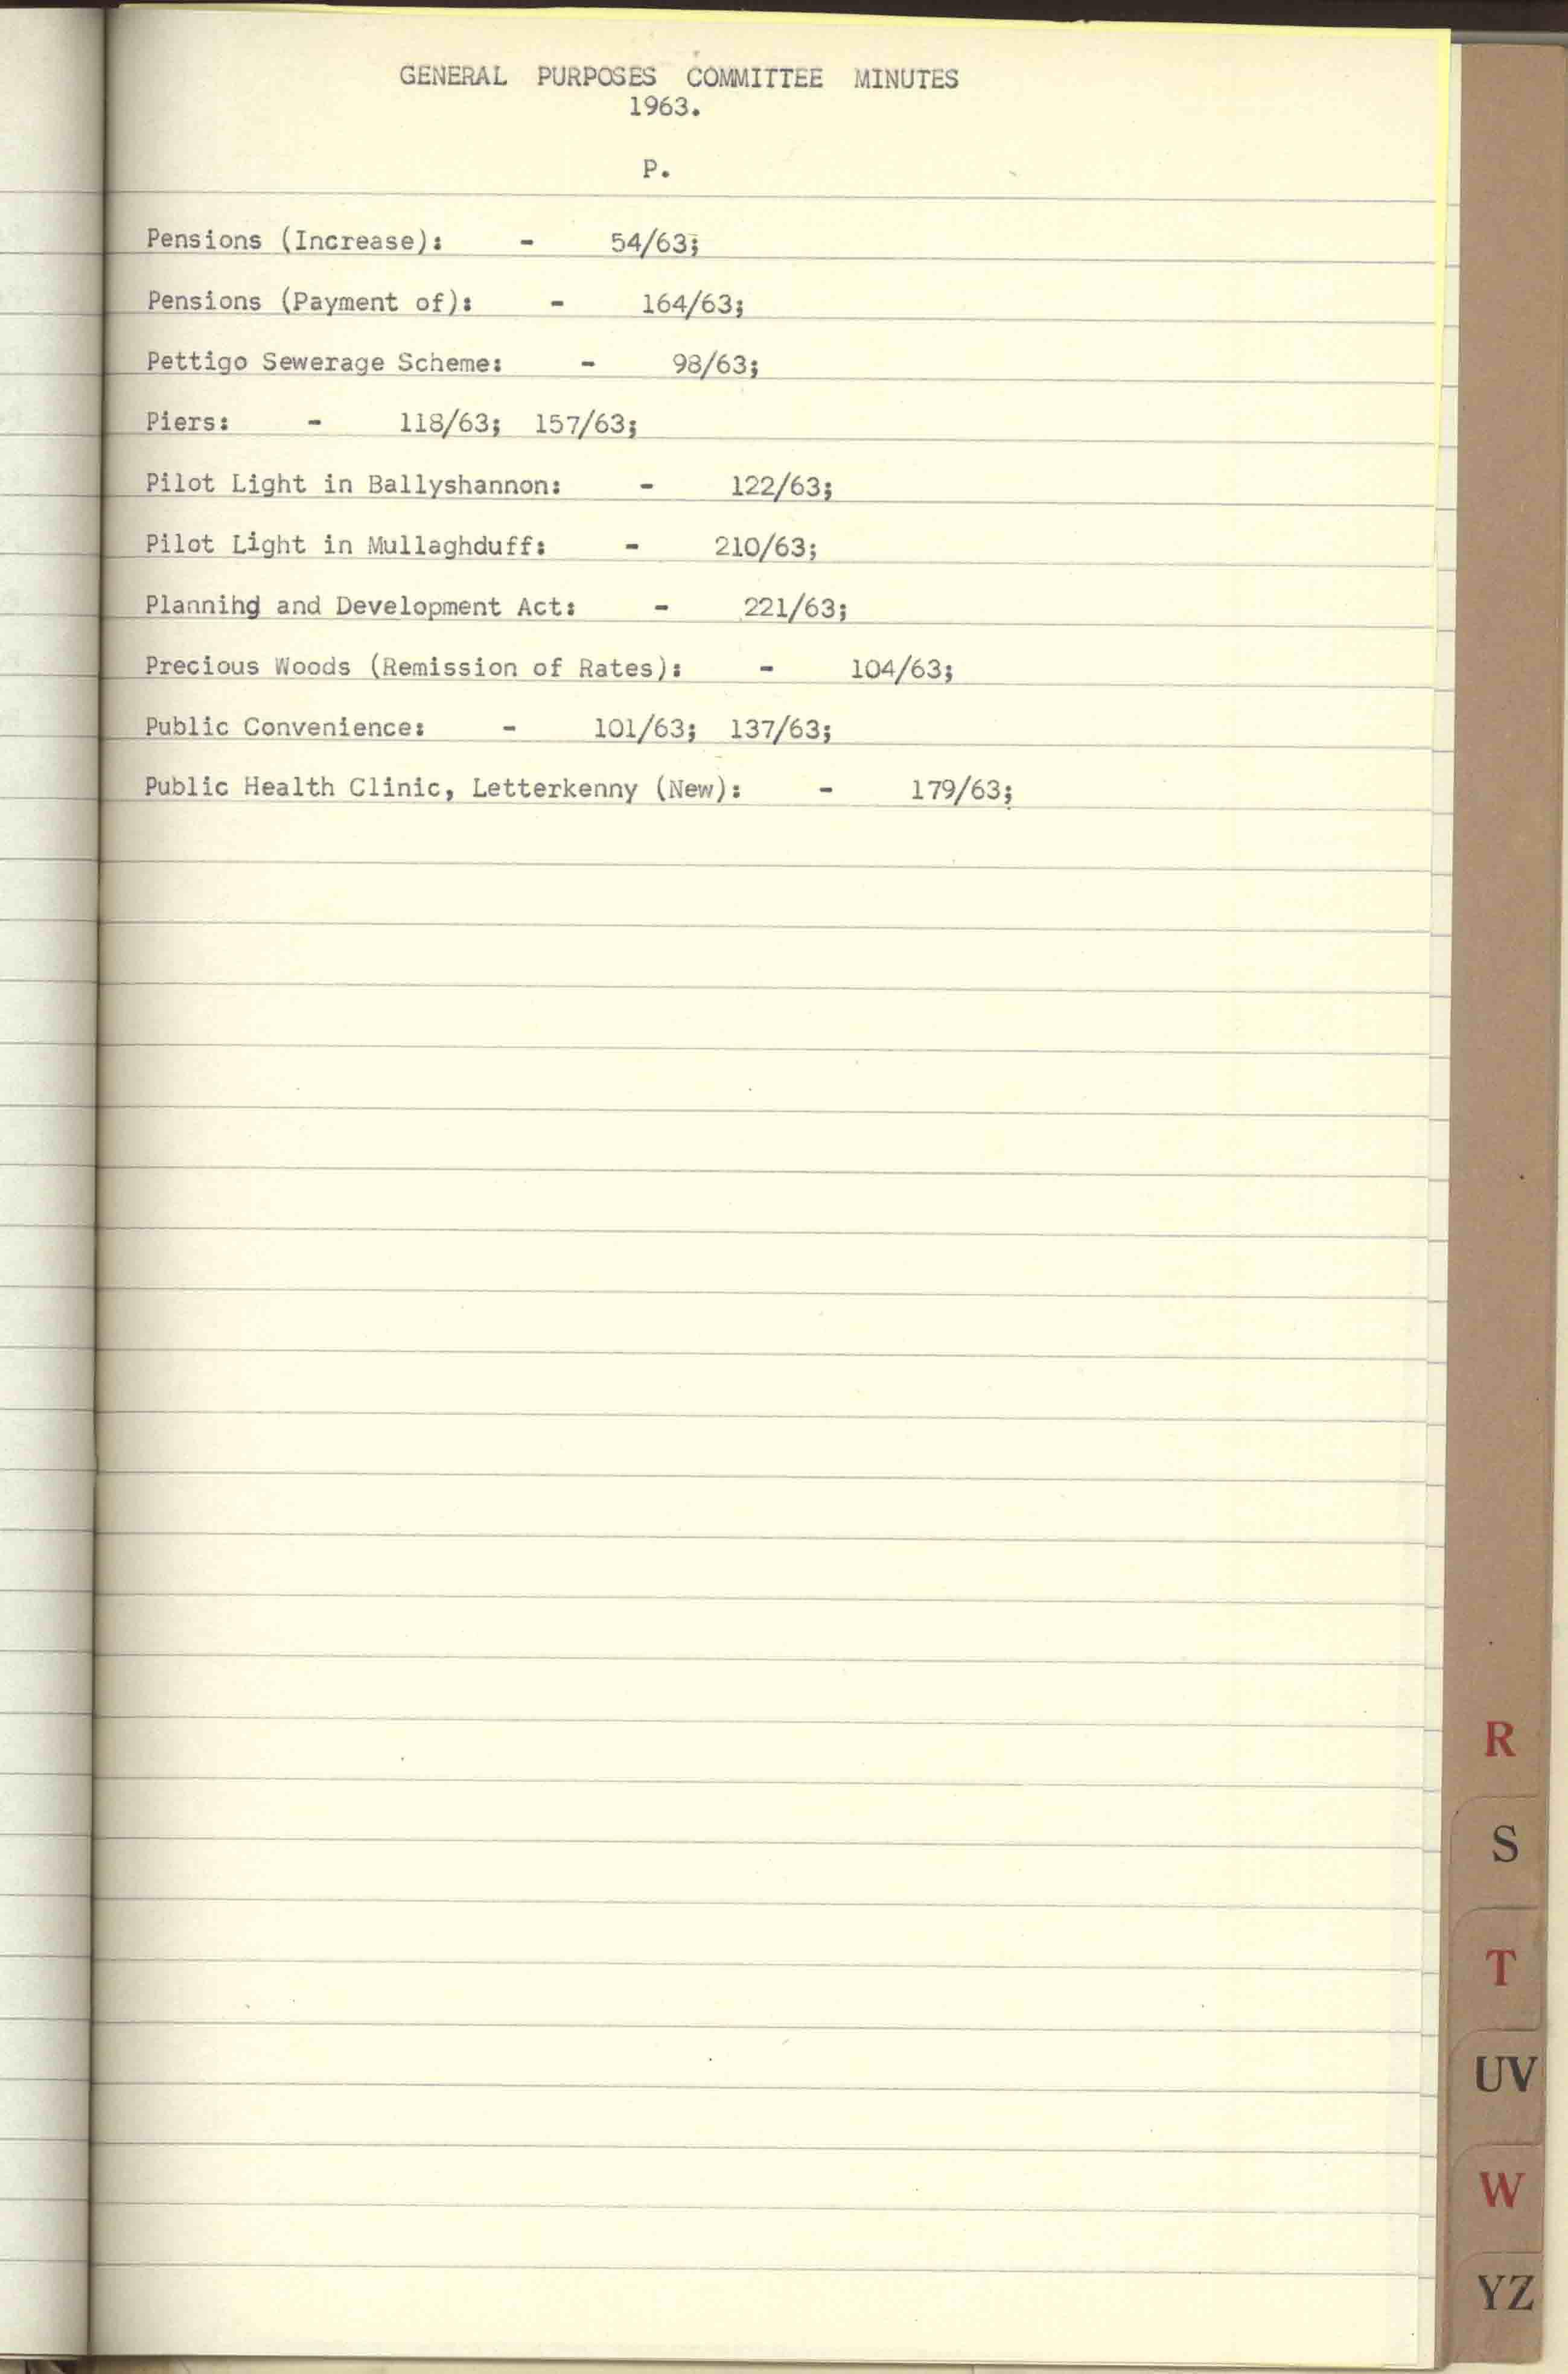 GENERAL PURPOSES COMMITTEE MINUTES
1963.
P.
Pensions (Increase): - 54/63;
Pensions (Payment of): - 164/63;
Pettigo Sewerage Scheme: - 98/63;
Piers: - 118/63; 157/63;
Pilot Light in Ballyshannon: - 122/63;
Pilot Light in Mullaghduff: - 210/63;
Plannihg and Development Act: - 221/63;
Precious Woods (Remission of Rates): - 104/63;
Public Convenience: - 101/63; 137/63;
Public Health Clinic, Letterkenny (New): - 179/63;
R
S
T
UV
W
YZ